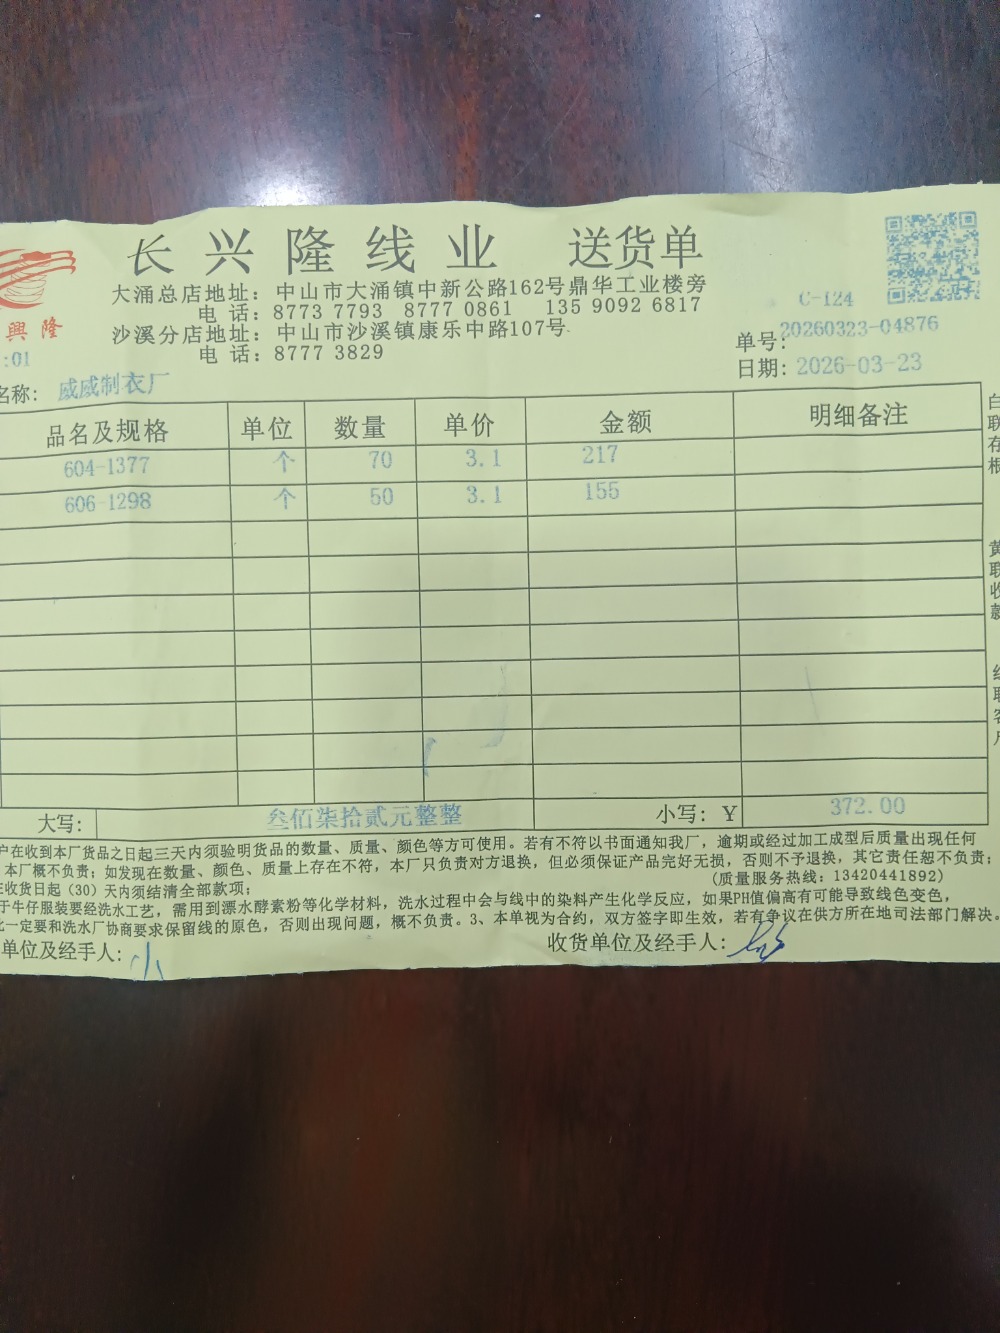 长兴隆线业 送货单
興隆
大涌总店地址：中山市大涌镇中新公路162号鼎华工业楼旁
电 话：8773 7793 8777 0861 135 9092 6817
沙溪分店地址：中山市沙溪镇康乐中路107号
电 话：8777 3829
C-124
单号：20260323-04876
:01
日期：2026-03-23
名称：威威制衣厂
品名及规格 单位 数量 单价 金额 明细备注
604-1377 个 70 3.1 217
606-1298 个 50 3.1 155
大写： 叁佰柒拾贰元整整 小写：¥ 372.00
户在收到本厂货品之日起三天内须验明货品的数量、质量、颜色等方可使用。若有不符以书面通知我厂，逾期或经过加工成型后质量出现任何
本厂概不负责；如发现在数量、颜色、质量上存在不符，本厂只负责对方退换，但必须保证产品完好无损，否则不予退换，其它责任恕不负责；
收货日起（30）天内须结清全部款项； (质量服务热线：13420441892)
于牛仔服装要经洗水工艺，需用到漂水酵素粉等化学材料，洗水过程中会与线中的染料产生化学反应，如果PH值偏高有可能导致线色变色，
一定要和洗水厂协商要求保留线的原色，否则出现问题，概不负责。3、本单视为合约，双方签字即生效，若有争议在供方所在地司法部门解决。
单位及经手人：小 收货单位及经手人：
白联存根
黄联收款